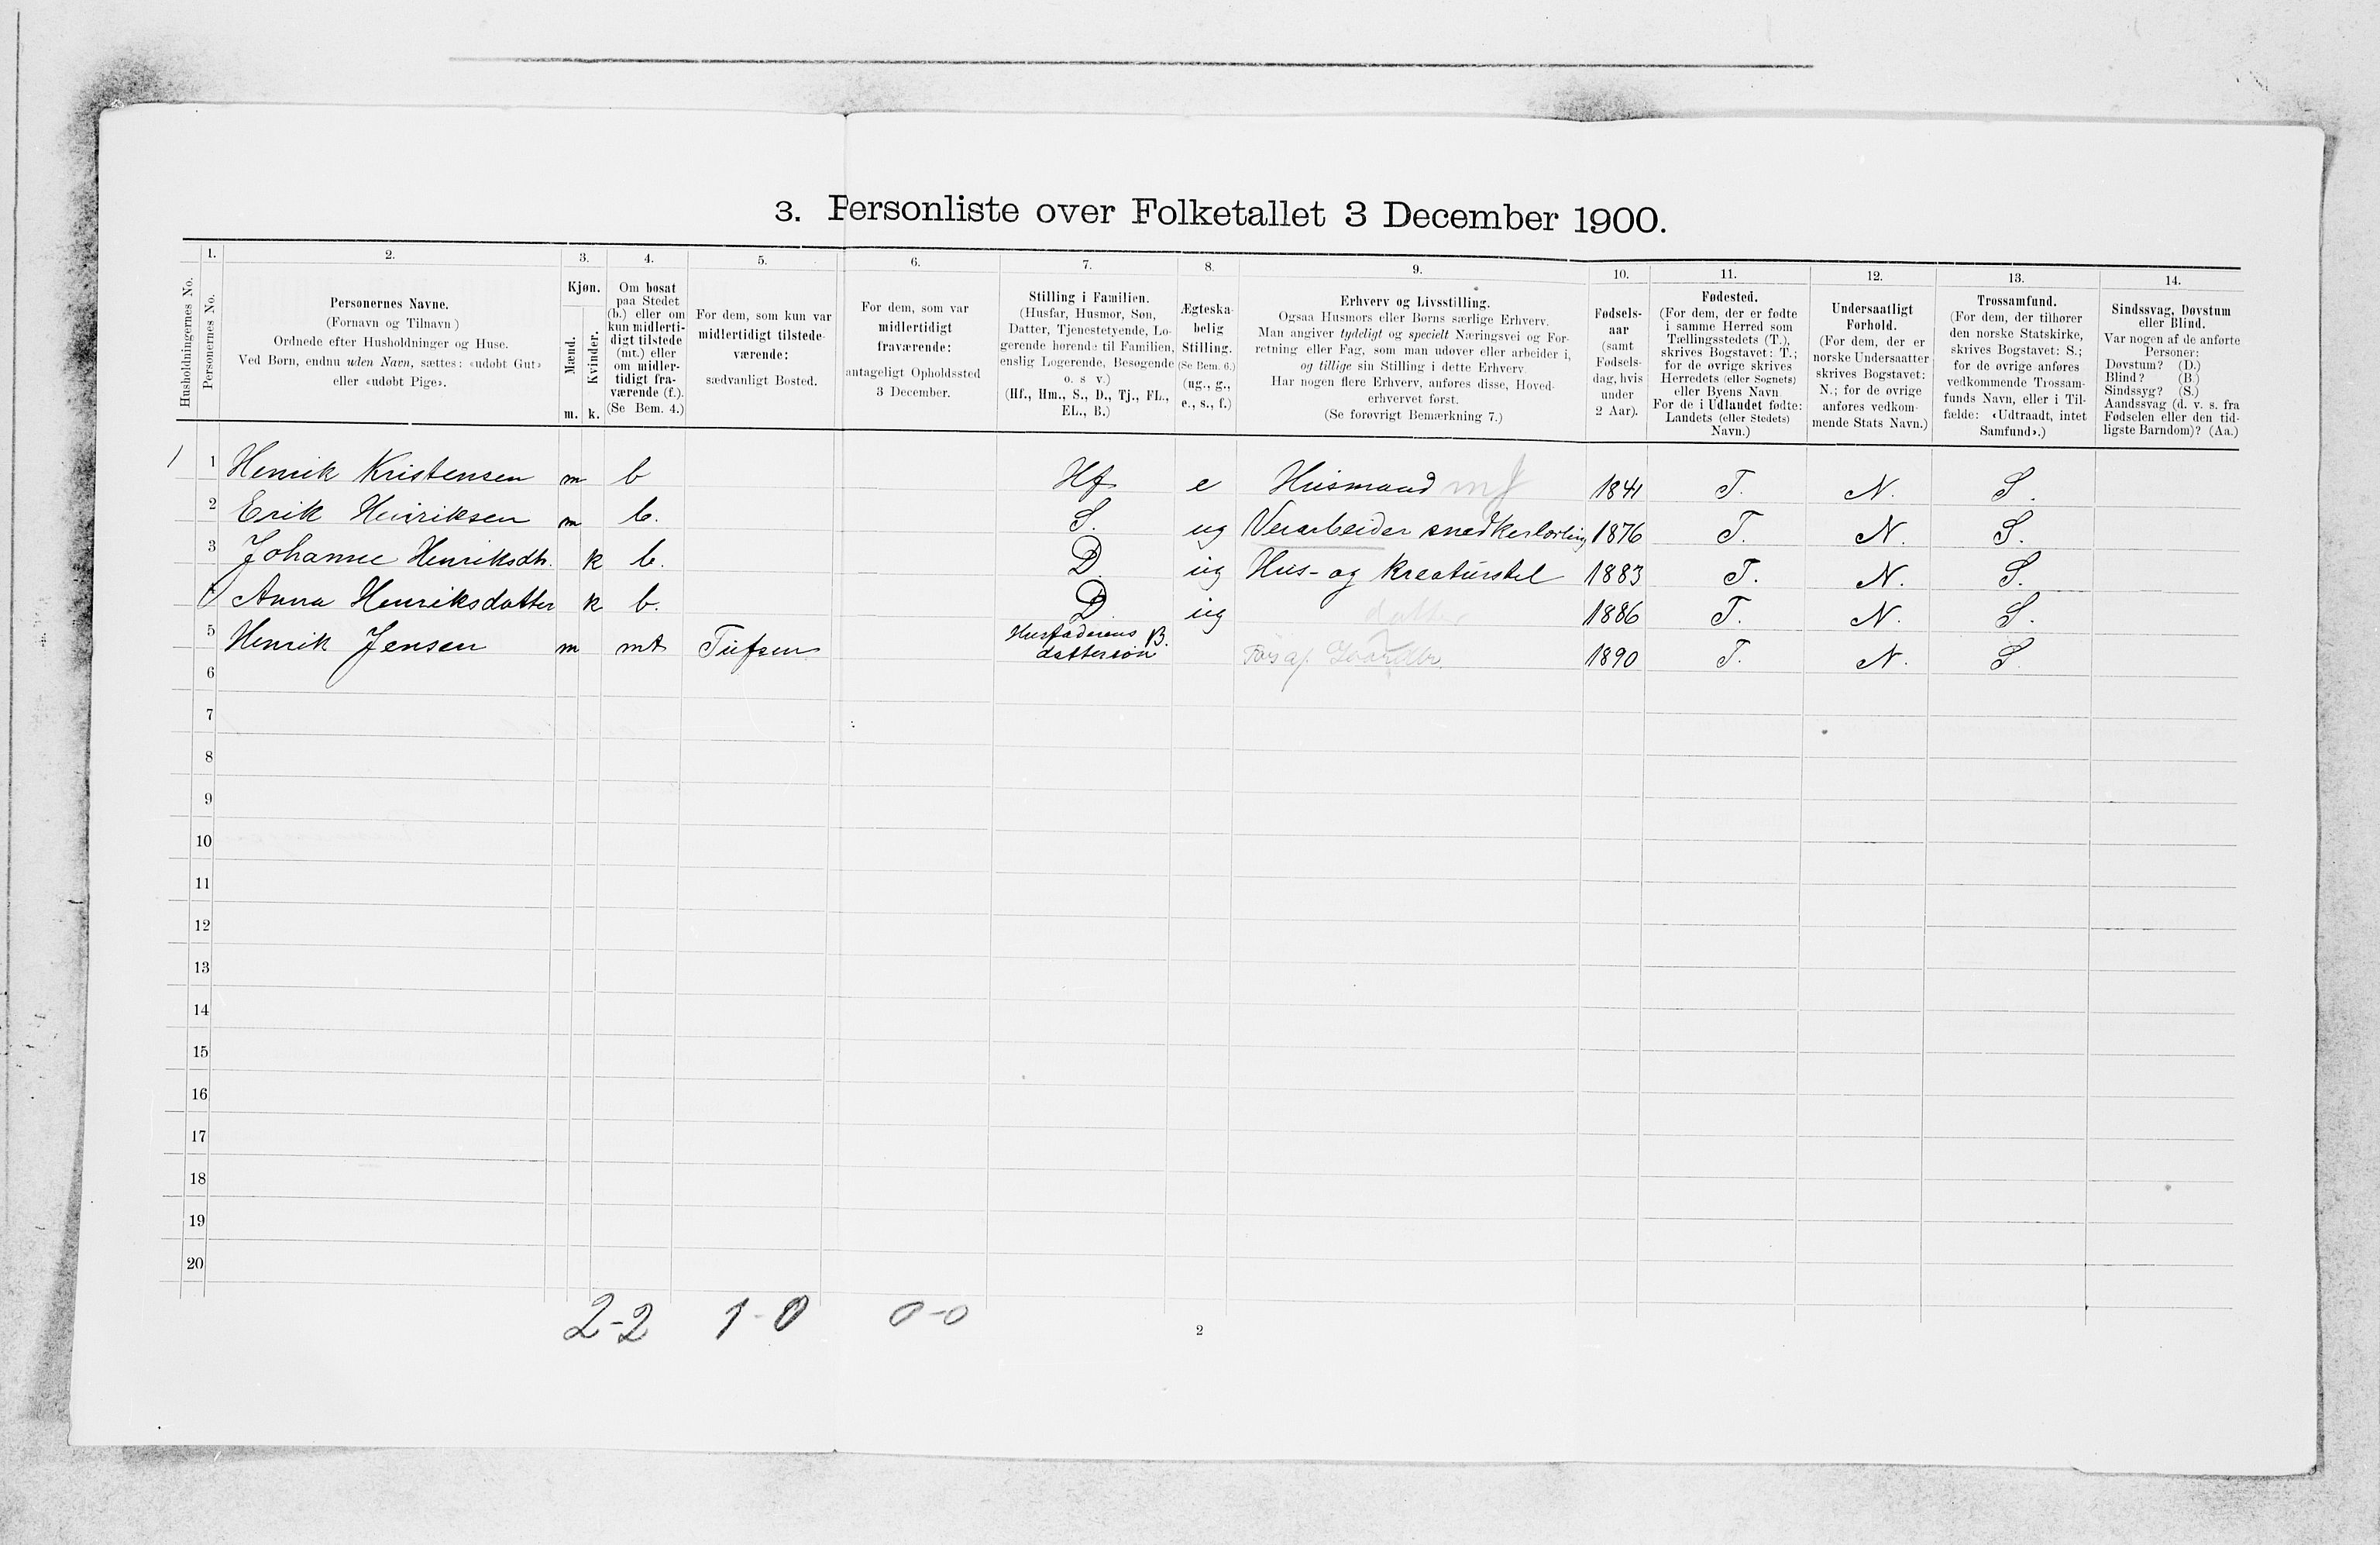 3. Personliste over Folketallet 3 December 1900.
Husholdningernes No.
1.
Personernes No.
2.
Personernes Navne.
(Fornavn og Tilnavn)
Ordnede efter Husholdninger og Huse.
Ved Børn, endnu uden Navn, sættes: «udøbt Gut»
eller «udøbt Pige».
3.
Kjøn.
Mænd.
Kvinder.
m. k.
4.
Om bosat
paa Stedet
(b.) eller om
kun midlerti-
digt tilstede
(mt.) eller
om midler-
tidigt fra-
værende (f.).
(Se Bem. 4.)
5.
For dem, som kun var
midlertidigt tilstede-
værende:
sædvanligt Bosted.
6.
For dem, som var
midlertidigt
fraværende:
antageligt Opholdssted
3 December.
7.
Stilling i Familien.
(Husfar, Husmor, Søn,
Datter, Tjenestetyende, Lo-
gerende hørende til Familien,
enslig Logerende, Besøgende
o. s v.)
(Hf., Hm., S., D., Tj., FL.,
EL., B.)
8.
Ægteska-
belig
Stilling.
(Se Bem. 6.)
(ug., g.,
e., s., f.)
9.
Erhverv og Livsstilling.
Ogsaa Husmors eller Børns særlige Erhverv.
Man angiver tydeligt og specielt Næringsvei og For-
retning eller Fag, som man udøver eller arbeider i,
og tillige sin Stilling i dette Erhverv.
Har nogen flere Erhverv, anføres disse, Hoved-
erhvervet først.
(Se forøvrigt Bemærkning 7.)
10.
Fødsels-
aar
(samt
Fødsels-
dag, hvis
under
2 Aar).
11.
Fødested.
(For dem, der er fødte
i samme Herred som
Tællingsstedets (T.),
skrives Bogstavet: T.;
for de øvrige skrives
Herredets (eller Sognets)
eller Byens Navn
For de i Udlandet fødte:
Landets (eller Stedets)
Navn.)
12.
Undersaatligt
Forhold.
(For dem, der er
norske Undersaatter
skrives Bogstavet:
N.; for de øvrige
anføres vedkom-
mende Stats Navn.)
13.
Trossamfund.
(For dem, der tilhører
den norske Statskirke,
skrives Bogstavet: S.;
for de øvrige anføres
vedkommende Trossam-
funds Navn, eller i Til-
fælde: «Udtraadt, intet
Samfund».)
14.
Sindssvag, Døvstum
eller Blind.
Var nogen af de anførte
Personer:
Døvstum? (D.)
Blind? (B.)
Sindssyg? (S.)
Aandssvag (d. v. s. fra
Fødselen eller den tid-
ligste Barndom)? (Aa.)
1 1 Henrik Kristensen m b Hf e Husmand mf 1841 T. N. S.
2 Erik Henriksen m b. S. ug Veiarbeider snedkerlærling 1876 T. N. S.
3 Johanne Henriksdtr. k b. D. ug Hus- og kreaturstel 1883 T. N. S.
Anna Henriksdatter k b. D. ug datter 1886 T. N. S.
5 Henrik Jensen m mt Tufsen Husfaderens B. dattersøn 1890 T. N. S.
6
7
8
9
10
11
12
13
14
15
16
17
18
19
20
2-2 1-0 0-0
2